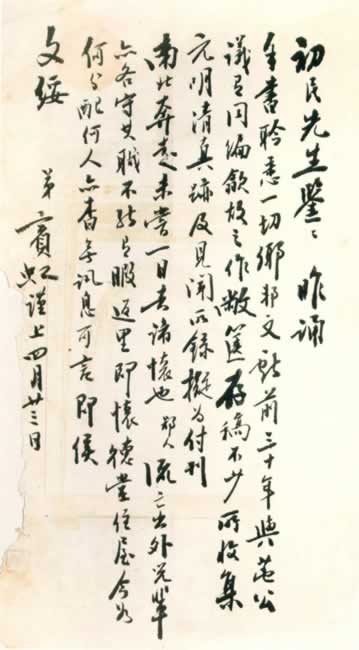 初民先生鉴鉴 昨诵
手书聆悉一切鄉邦文献前三十年與苣公
議有同編歙故之作敝箧存稿不少所收集
元明清真跡及見聞所錄擬为付刊
南北奔走未嘗一日去諸懷也鄙人流亡出外兄輩
亦各守其職不能有暇返里即懷德堂住屋今为
何公配何人亦杳無訊息可言即候
文绥
弟賓虹謹上四月廿三日